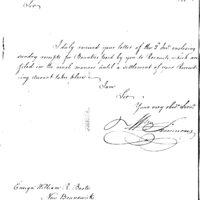 Sir
I duly received your letter of the 2 inst enclosing
sundry receipts for Bounties paid by you to Recruits, which are
filed in the usual manner until a settlement of your Recruit-
ing account takes place
I am
Sir
Your very obt Servt
Wm Simmons
Ensign William R. Boote
New Brunswick